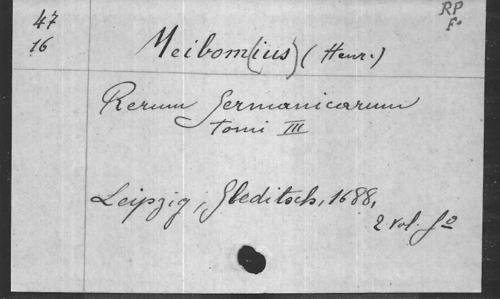 47
16
RP
Fo
Meibom(ius) (Henr.)
Rerum Germanicarum
tomi III
Leipzig, Gleditsch, 1688,
2 vol. fo